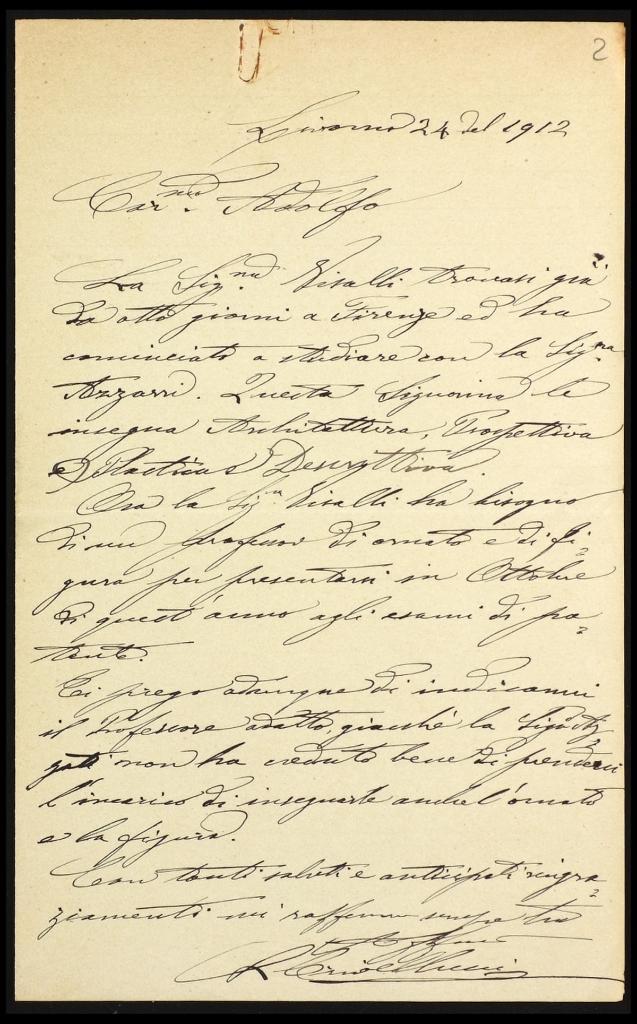 2
Livorno 24 del 1912
Car.mo Adolfo
La Sig.na Visalli trovasi già
da otto giorni a Firenze ed ha
cominciato a studiare con la Sig.na
Azzarri. Questa Signorina le
insegna Architettura, Prospettiva
e Plastica Descrittiva.
Ora la Sig.na Visalli ha bisogno
di un professor di ornato e di fi=
gura per presentarsi in Ottobre
di quest'anno agli esami di pa=
tente.
Ti prego adunque di indicarmi
il Professore adatto, giacché la
non ha creduto bene di prendersi
l'incarico di insegnarle anche l'ornato
e la figura.
Con tanti saluti e anticipati ringra=
ziamenti mi raffermo sempre tuo